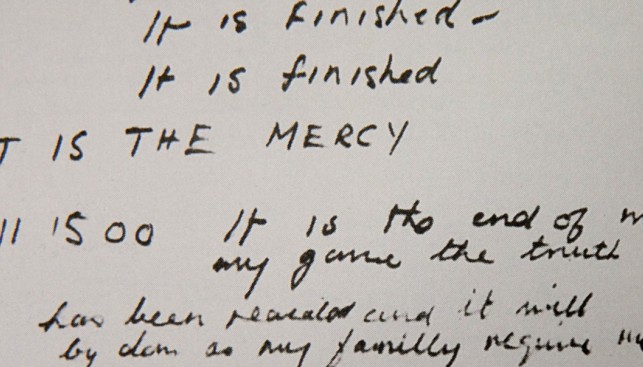 It is finished -
It is finished
T IS THE MERCY
11 15 00 It is the end of m
my game the truth
has been revealed and it will
by don as my familly require my